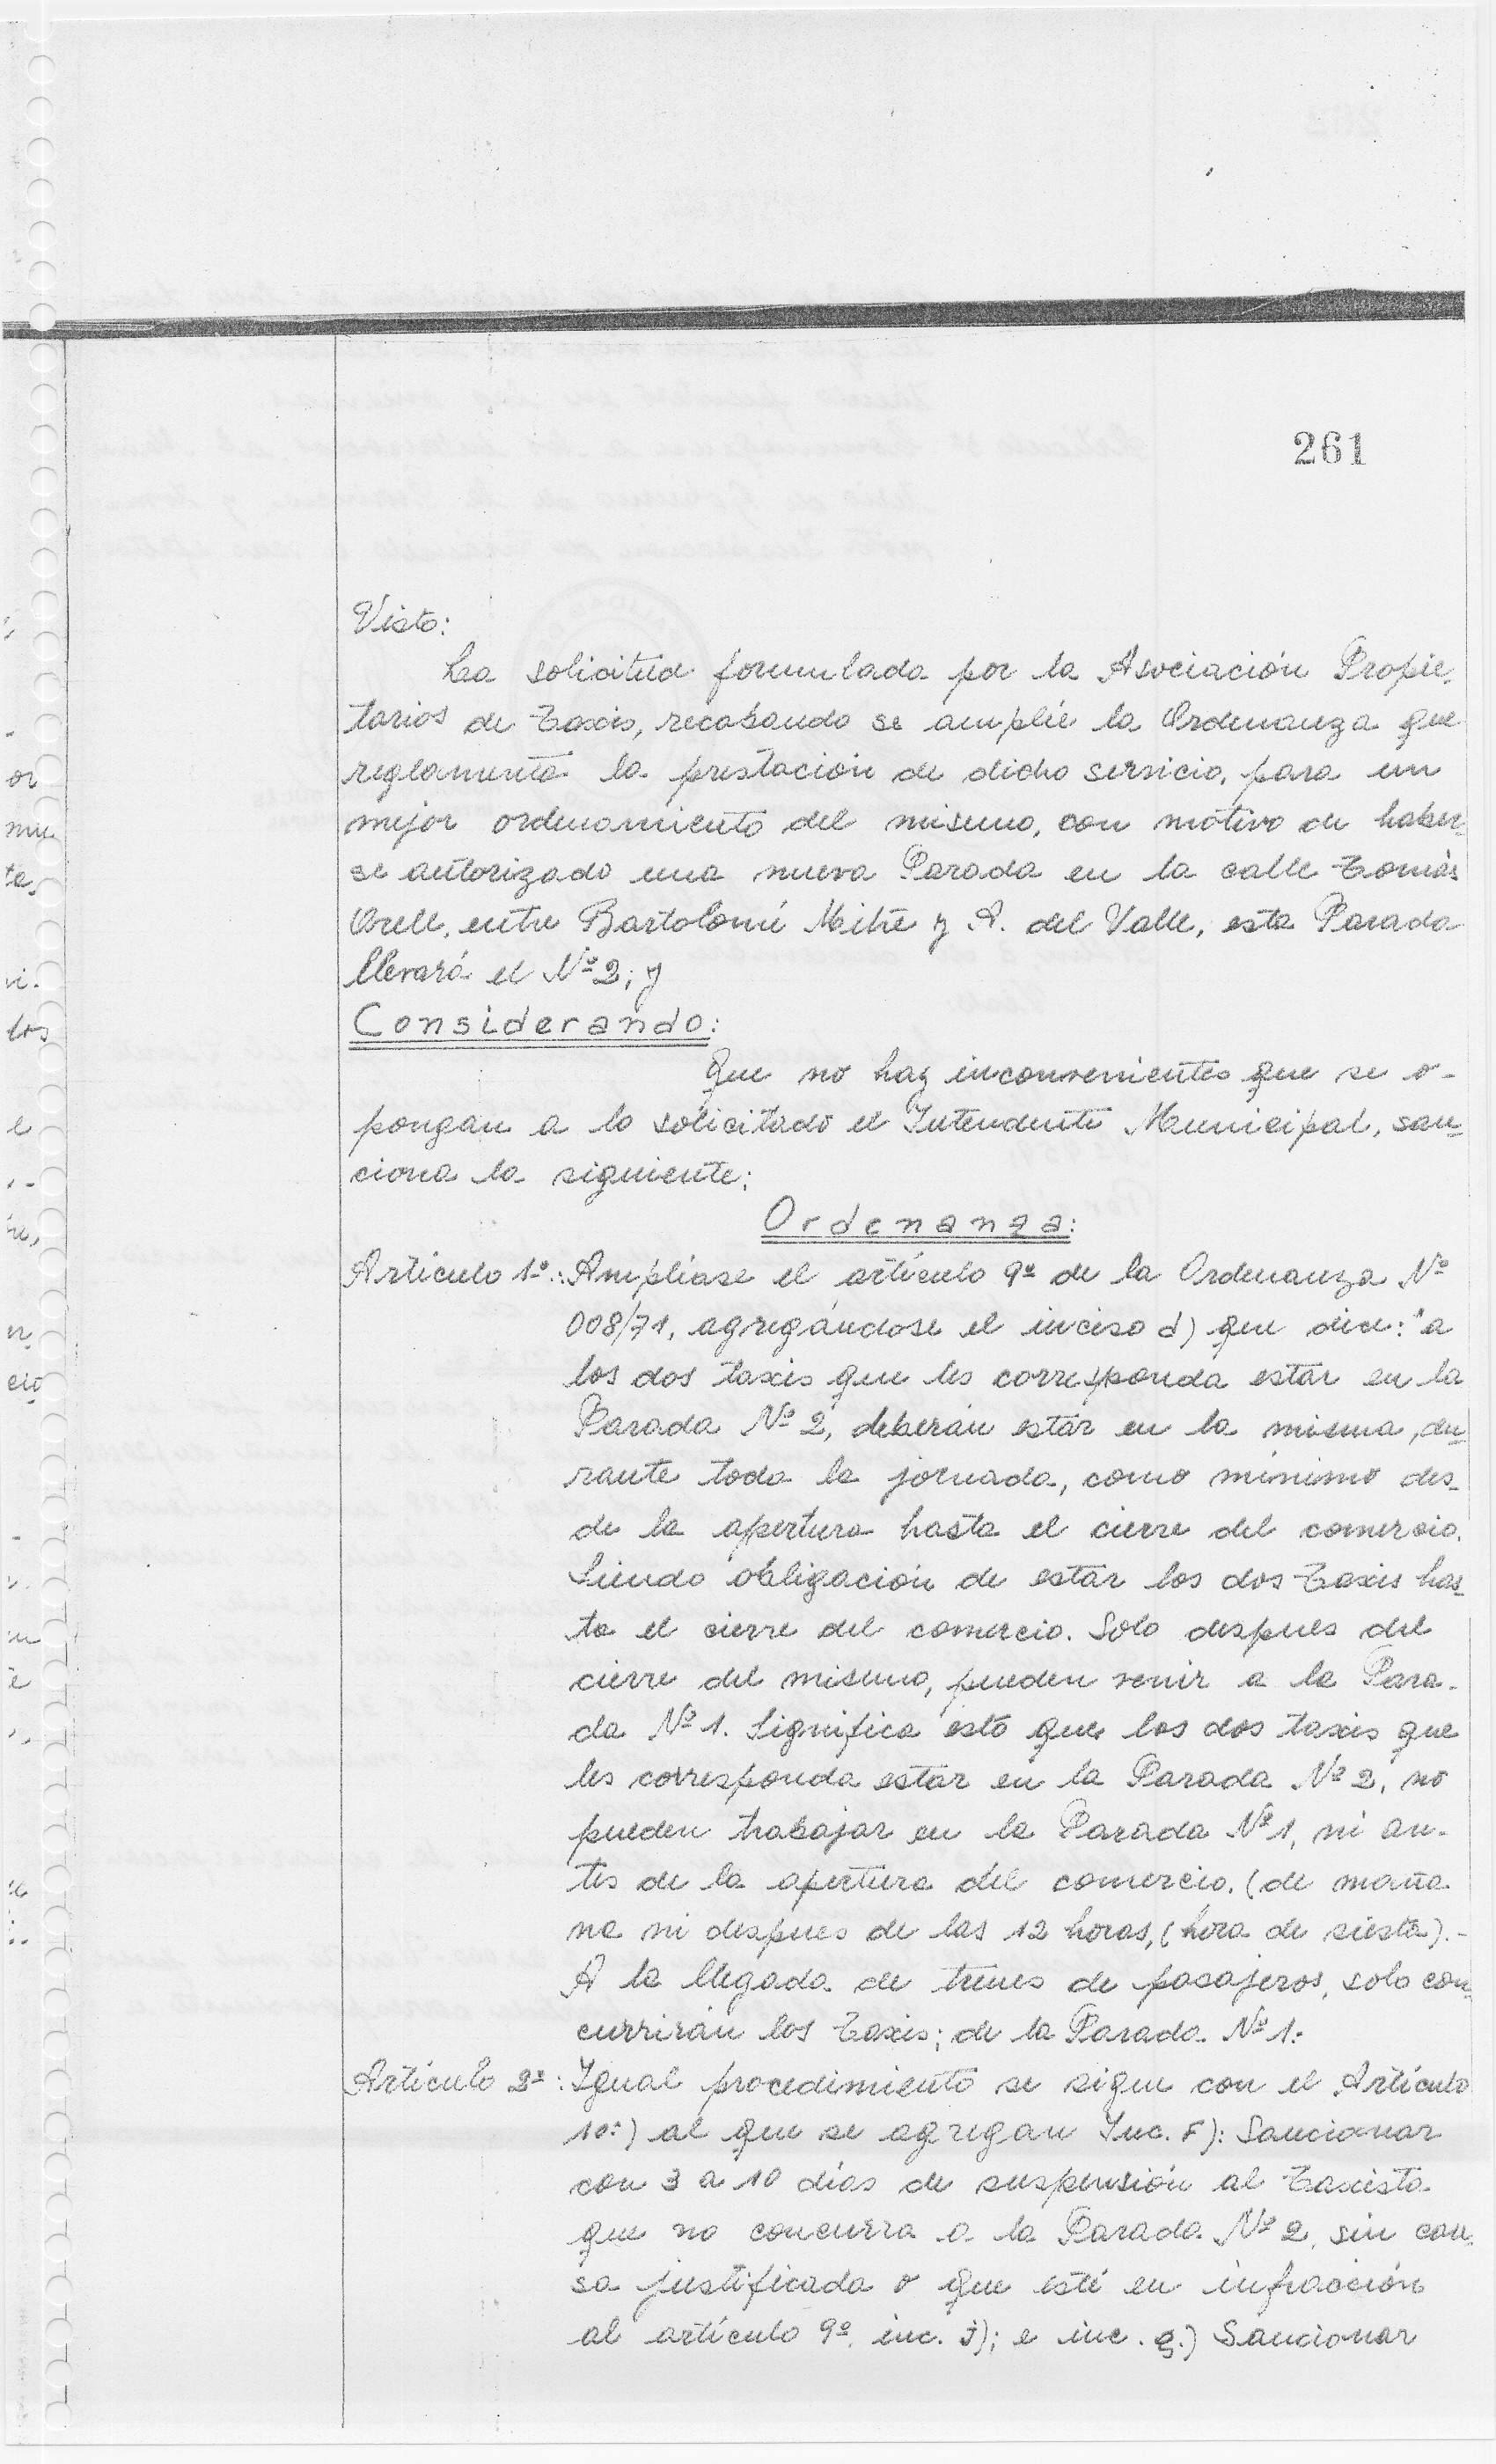 261
Visto:
La solicitud formulada por la Asociación Propie-
tarios de Taxis, recabando se amplíe la Ordenanza que
reglamenta la prestación de dicho servicio, para un
mejor ordenamiento del mismo, con motivo de haber-
se autorizado una nueva Parada en la calle Tomás
Orell, entre Bartolomé Mitre y A. del Valle, esta Parada
llevará el Nº 2; y
Considerando:
Que no hay inconvenientes que se o-
pongan a lo solicitado el Intendente Municipal, san-
ciona la siguiente:
Ordenanza:
Artículo 1º.: Amplíase el artículo 9º de la Ordenanza Nº
008/71, agregándose el inciso d) que dice: "a
los dos taxis que les corresponda estar en la
Parada Nº 2, deberán estar en la misma, du-
rante toda la jornada, como mínimo des-
de la apertura hasta el cierre del comercio.
Siendo obligación de estar los dos Taxis has-
ta el cierre del comercio. Solo despues del
cierre del mismo, pueden venir a la Para-
da Nº 1. Significa esto que los dos taxis que
les corresponda estar en la Parada Nº 2, no
pueden trabajar en la Parada Nº 1, ni an-
tes de la apertura del comercio. (de maña-
na ni despues de las 12 horas, (hora de siesta).-
A la llegada de trenes de pasajeros, solo con-
currirán los Taxis; de la Parada Nº 1.
Artículo 2º: Igual procedimiento se sigue con el Artículo
10º) al que se agregan Inc. F): Sancionar
con 3 a 10 días de suspensión al Taxista
que no concurra a la Parada Nº 2, sin cau-
sa justificada o que esté en infracción
al artículo 9º inc. j); e inc. g.) Sancionar